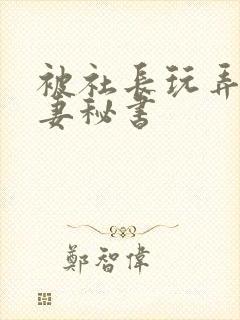 被社長玩弄
妻秘書
鄭智偉